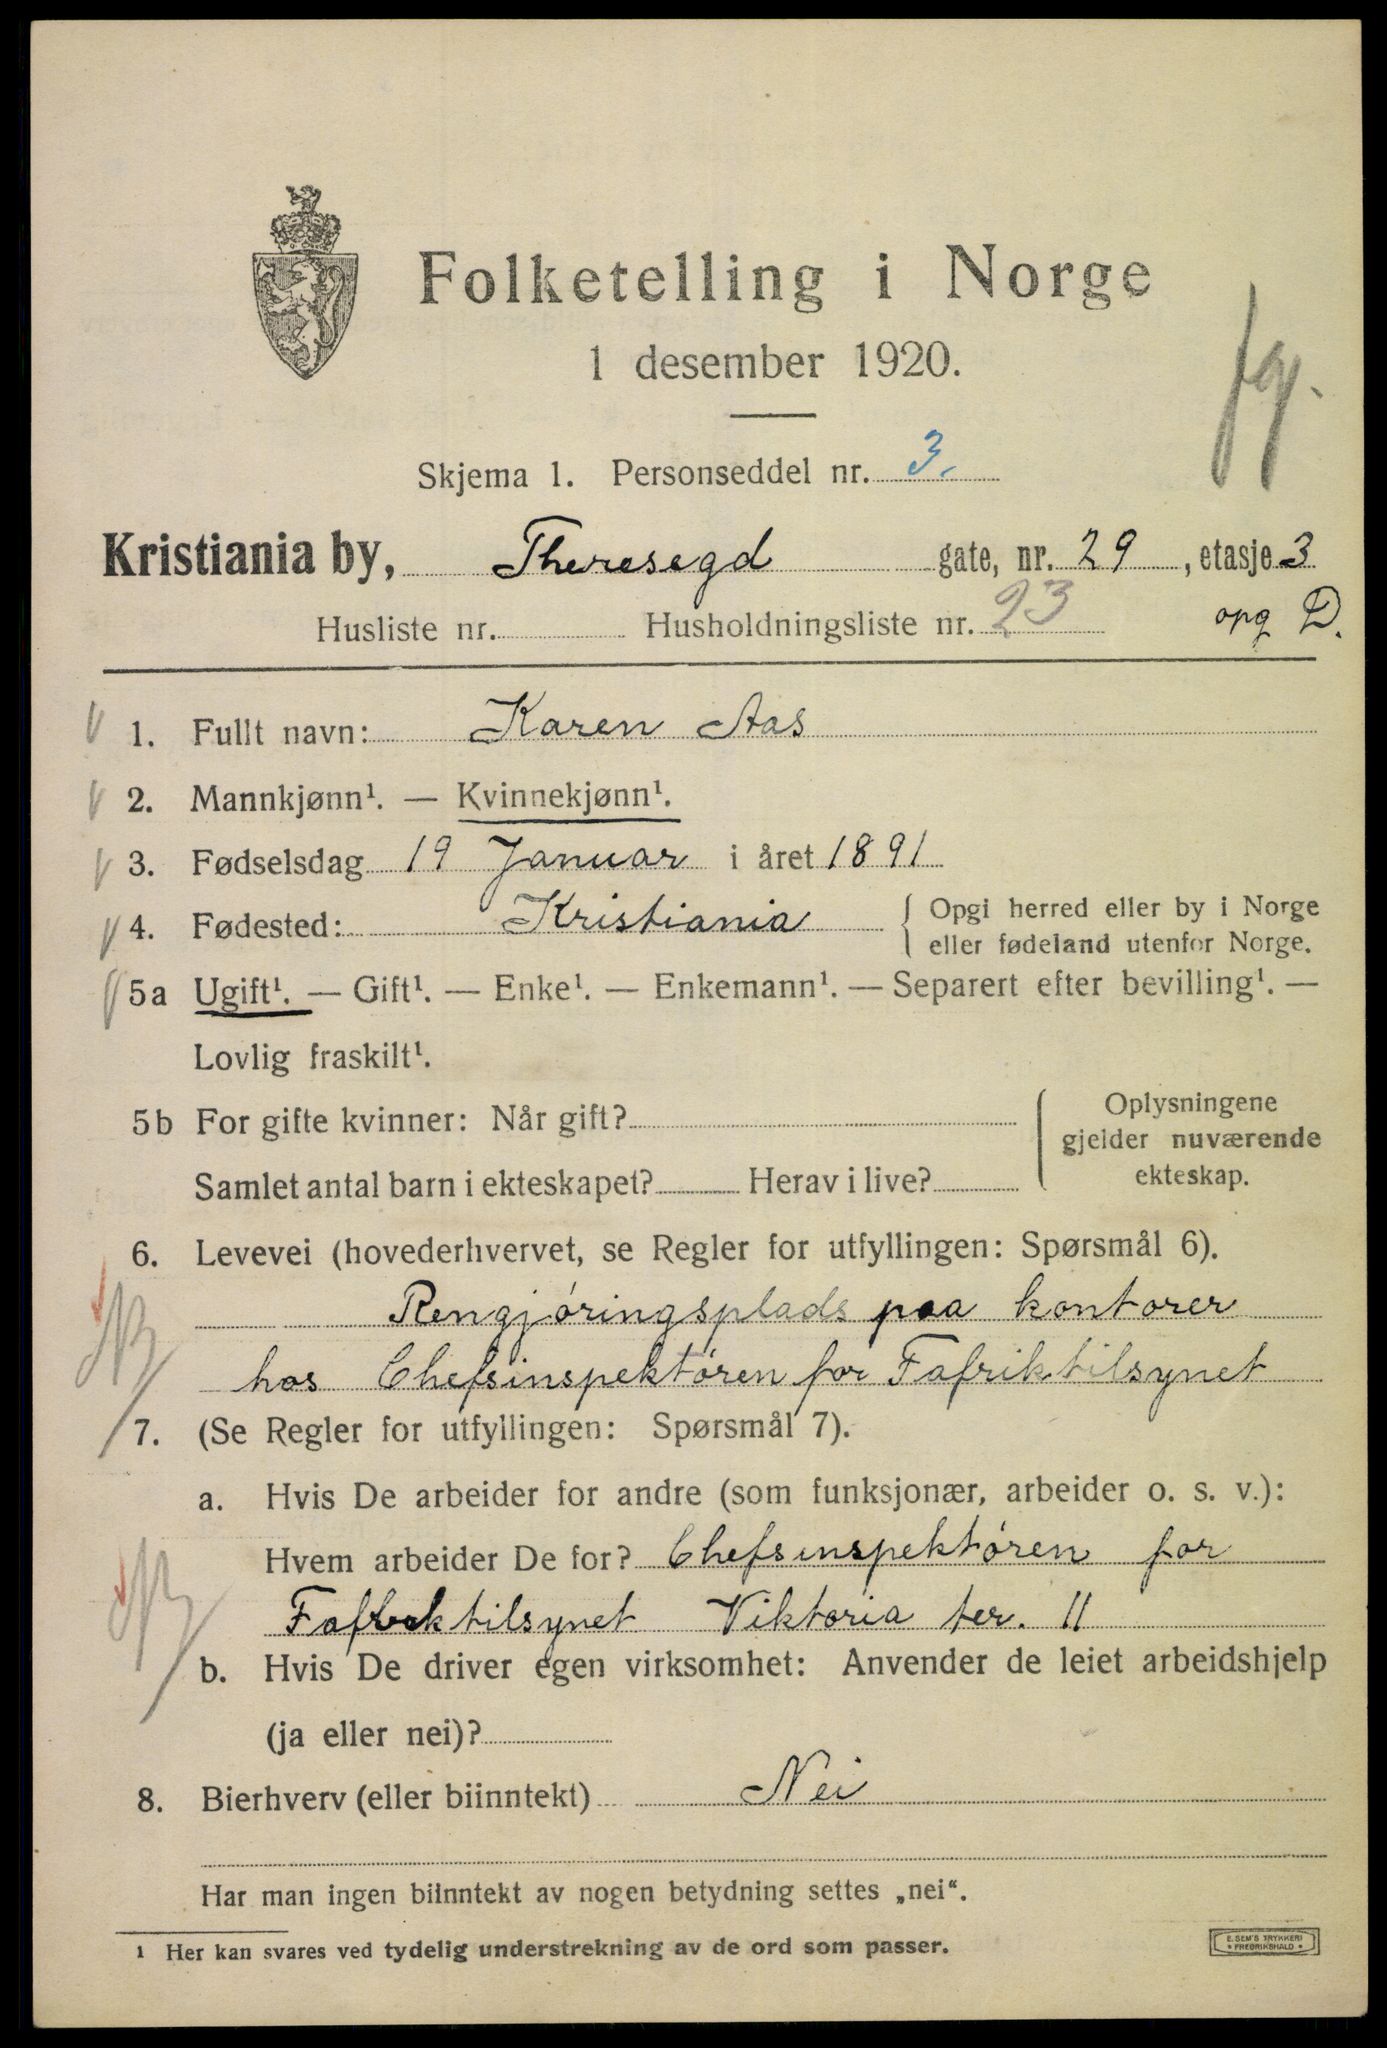 Folketelling i Norge
1 desember 1920.
fg.
Skjema 1. Personseddel nr. 3.
Kristiania by, Theresegd gate, nr. 29, etasje 3
Husliste nr. Husholdningsliste nr. 23 opg D.
1. Fullt navn: Karen Aas
2. Mannkjønn¹. — Kvinnekjønn¹.
3. Fødselsdag 19 Januar i året 1891
4. Fødested: Kristiania { Opgi herred eller by i Norge
eller fødeland utenfor Norge.
5a Ugift¹. — Gift¹. — Enke¹. — Enkemann¹. — Separert efter bevilling¹. —
Lovlig fraskilt¹.
5b For gifte kvinner: Når gift?
Samlet antal barn i ekteskapet? Herav i live?
{ Oplysningene
gjelder nuværende
ekteskap.
6. Levevei (hovederhvervet, se Regler for utfyllingen: Spørsmål 6).
Rengjøringsplads paa kontorer
hos Chefsinspektøren for Fafriktilsynet
7. (Se Regler for utfyllingen: Spørsmål 7).
a. Hvis De arbeider for andre (som funksjonær, arbeider o. s. v.):
Hvem arbeider De for? Chefsinspektøren for
Viktoria ter. 11
b. Hvis De driver egen virksomhet: Anvender de leiet arbeidshjelp
(ja eller nei)?
8. Bierhverv (eller biinntekt) Nei
Har man ingen biinntekt av nogen betydning settes „nei“.
¹ Her kan svares ved tydelig understrekning av de ord som passer.
E. SEM'S TRYKKERI
* FREDRIKSHALD *